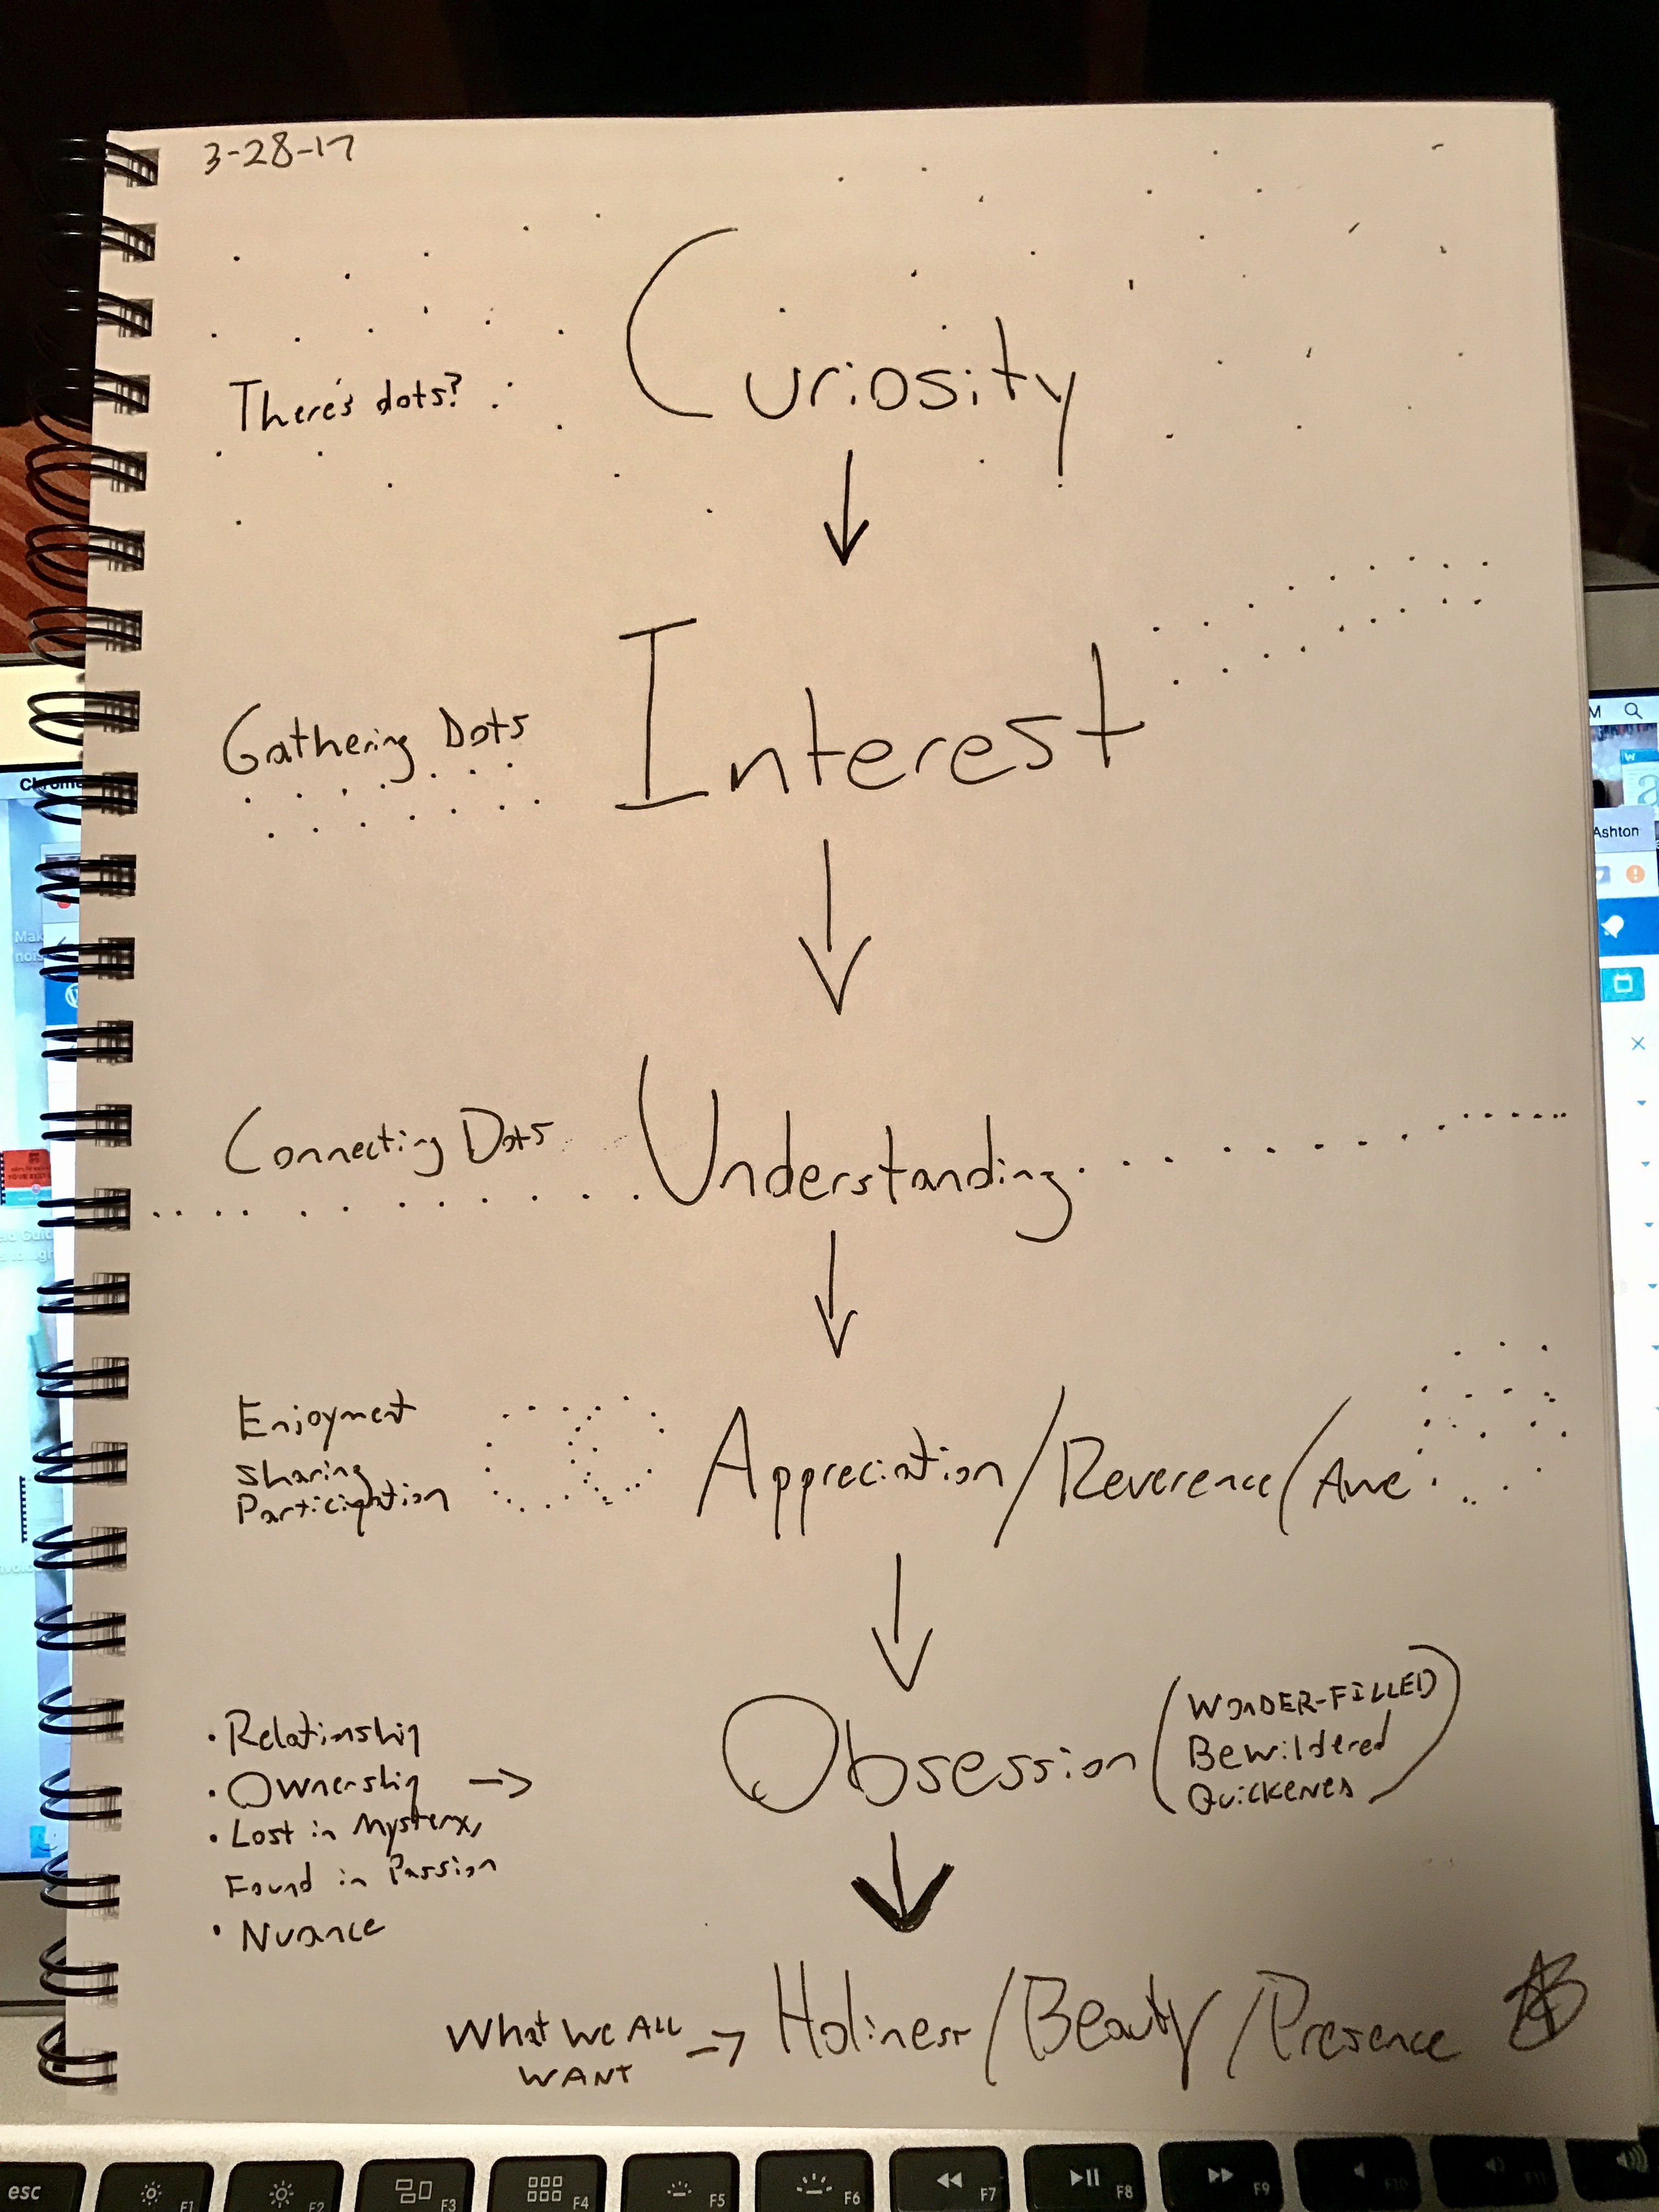 3-28-17
There's dots?
Curiosity
Gathering Dots
Interest
Connecting Dots
Understanding
Enjoyment
Sharing
Participation
Appreciation/Reverence/Awe
• Relationship
• Ownership →
• Lost in Mystery,
Found in Passion
• Nuance
Obsession
(WONDER-FILLED
Bewildered
Quickened)
What We All
WANT
→ Holiness/Beauty/Presence
M
Ashton
esc
F1
F2
F3
F4
F5
F6
F7
F8
F9
F10
F11